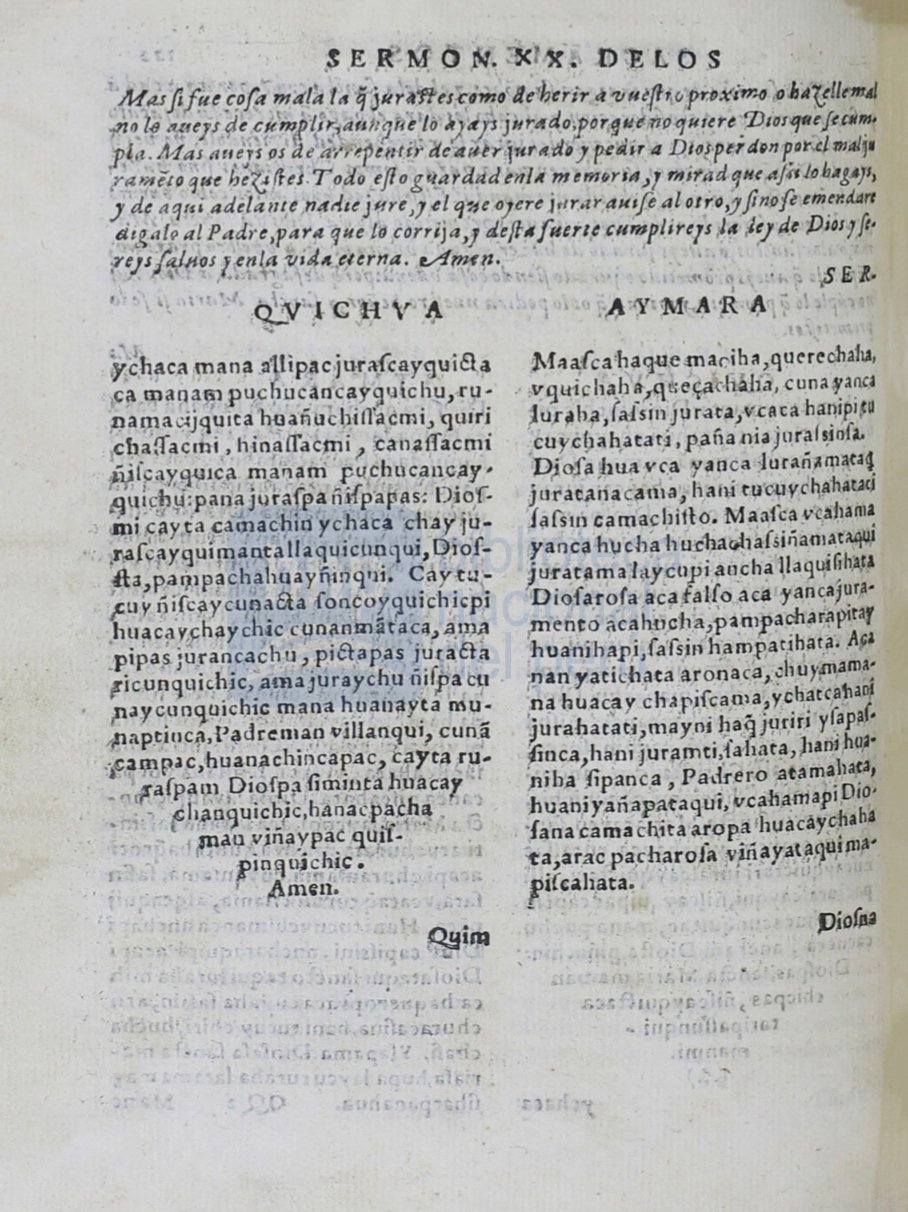 SERMON. XX. DELOS
Mas ſi fue coſa mala la q̃ juraſtes como de herir a vueſtro proximo o hazelle mal
no lo aueys de cumplir, aunque lo ayays jurado, porque no quiere Dios que ſe cum-
pla. Mas aueys os de arrepentir de auer jurado y pedir a Dios perdon por el mal ju
ramẽto que hezistes. Todo eſto guardad enla memoria, y mirad que aſsi lo hagays,
y de aqui adelante nadie jure, y el que oyere jurar auiſe al otro, y ſino ſe emendare
digalo al Padre, para que lo corrija, y deſta ſuerte cumplireys la ley de Dios y ſe-
reys ſaluos y enla vida eterna. Amen.
SER-
QVICHVA
ychaca mana allipac juraſcayquicta
ca manam puchucancayquichu, ru-
namacijquita huañuchiſſacmi, quiri
chaſſacmi, hinaſſacmi, canaſſacmi
ñiſcayquica manam puchucancay-
quichu: pana juraſpa ñiſpapas: Dioſ-
mi cayta camachin ychaca chay ju-
raſcayquimanta llaquicunqui, Dioſ-
ſta, pampachahuay ñinqui. Cay tu-
cuy ñiſcaycunacta ſoncoyquichicpi
huacaychaychic cunanmãtaca, ama
pipas jurancachu, pictapas juracta
ricunquichic, ama juraychu ñiſpa cu
naycunquichic mana huanayta mu-
naptinca, Padreman villanqui, cunã
campac, huanachincapac, cayta ru-
raſpam Dioſpa ſiminta huacay
chanquichic, hanacpacha
man viñaypac quiſ-
pinquichic.
Amen.
Quim
AYMARA
Maaſca haque maciha, querechaha,
vquichaha, queçachaha, cuna yanca
luraha, ſaſsin jurata, vcaca hanipi tu
cuychahatati, paña nia juraſsinſa.
Dioſa hua vca yanca lurañamataq̃
juratanacama, hani tucuychahatati
ſaſsin camachiſto. Maaſca vcahama
yanca hucha huchachaſsiñamataqui
juratama laycupi ancha llaquiſihata
Dioſaroſa aca falſo aca yanca jura-
mento acahucha, pampacharapitay
huanihapi, ſaſsin hampatihata. Aca
nan yatichata aronaca, chuymama-
na huacay chapiſcama, ychatca hani
jurahatati, mayni haq̃ juriri yſapaſ-
ſinca, hani juramti, ſahata, hani hua-
niha ſipanca, Padrero atamahata,
huaniyañapataqui, vcahamapi Dio-
ſana camachita aropa huacaychaha
ta, arac pacharoſa viñayataqui ma-
piſcahata.
Dioſna